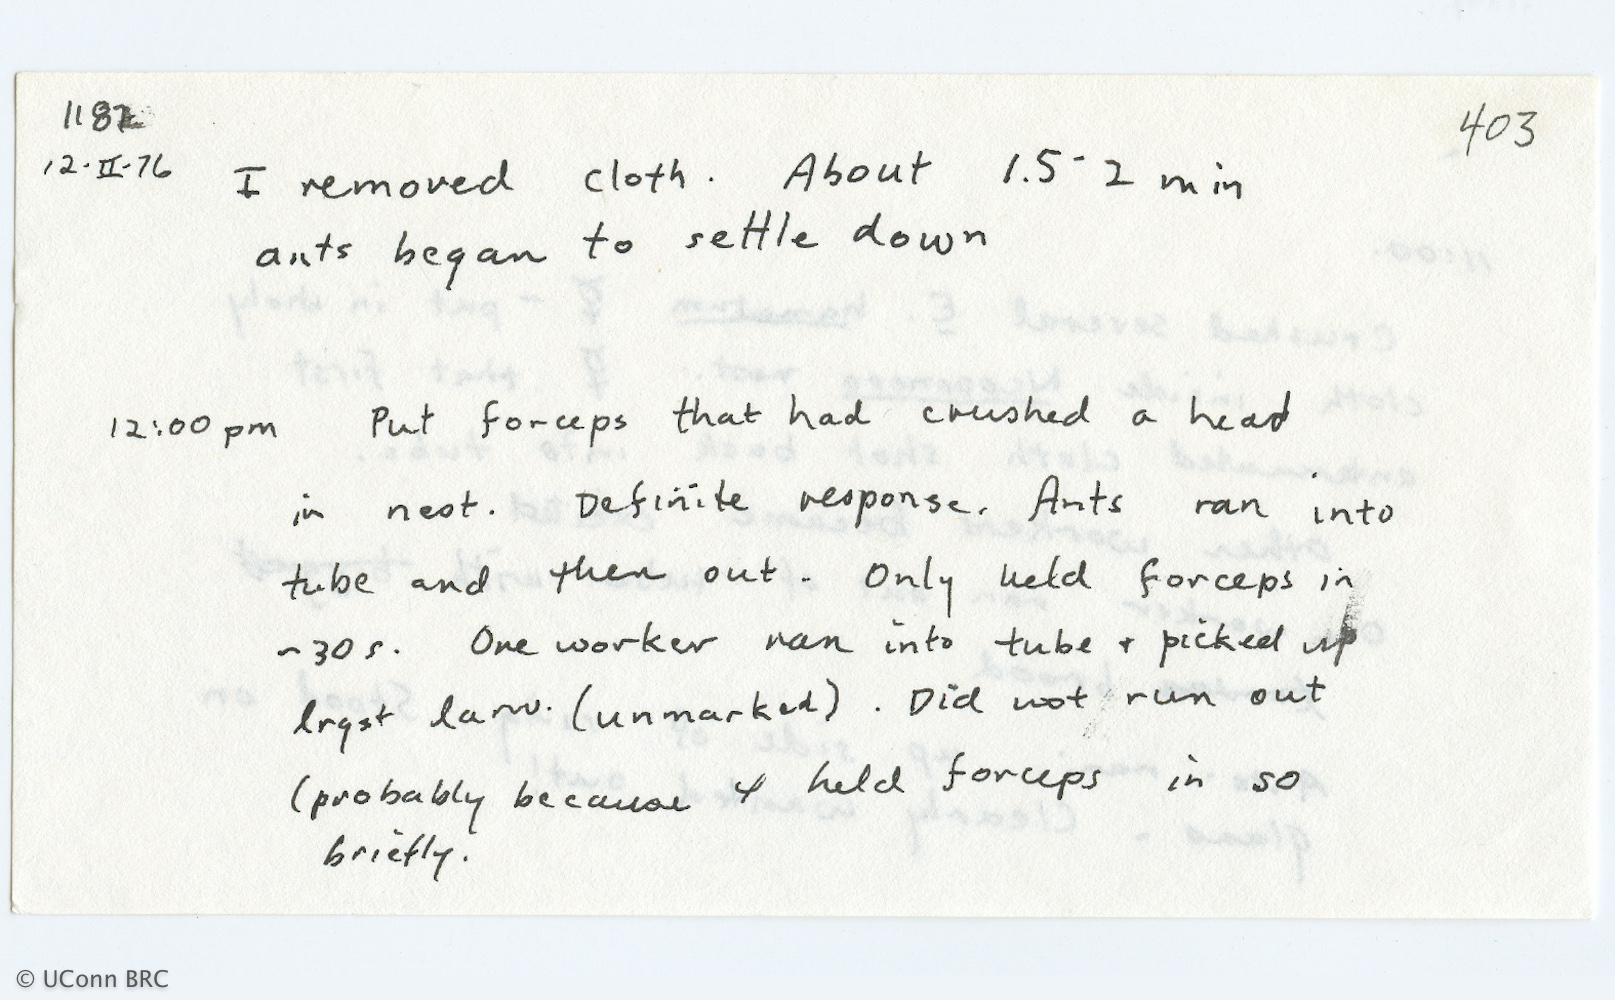 1187
403
12·II·76 I removed cloth. About 1.5-2 min
ants began to settle down
12:00 pm Put forceps that had crushed a head
in nest. Definite response. Ants ran into
tube and then out. Only held forceps in
~30 s. One worker ran into tube + picked up
lrgst larv. (unmarked). Did not run out
(probably because I held forceps in so
briefly.
© UConn BRC